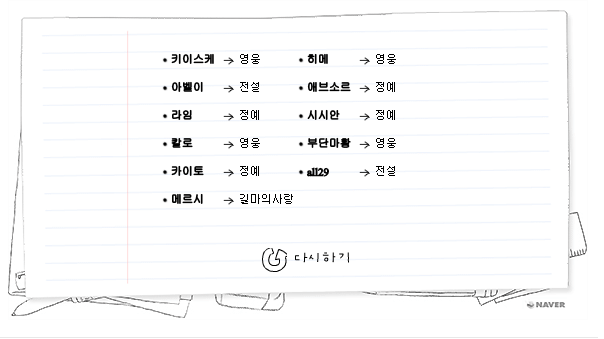 • 키이스케 → 영웅 • 히메 → 영웅
• 아벨이 → 전설 • 애브소르 → 정예
• 라임 → 정예 • 시시안 → 정예
• 칼로 → 영웅 • 부단마황 → 영웅
• 카이토 → 정예 • all29 → 전설
• 메르시 → 길마의사랑
다시하기
NAVER